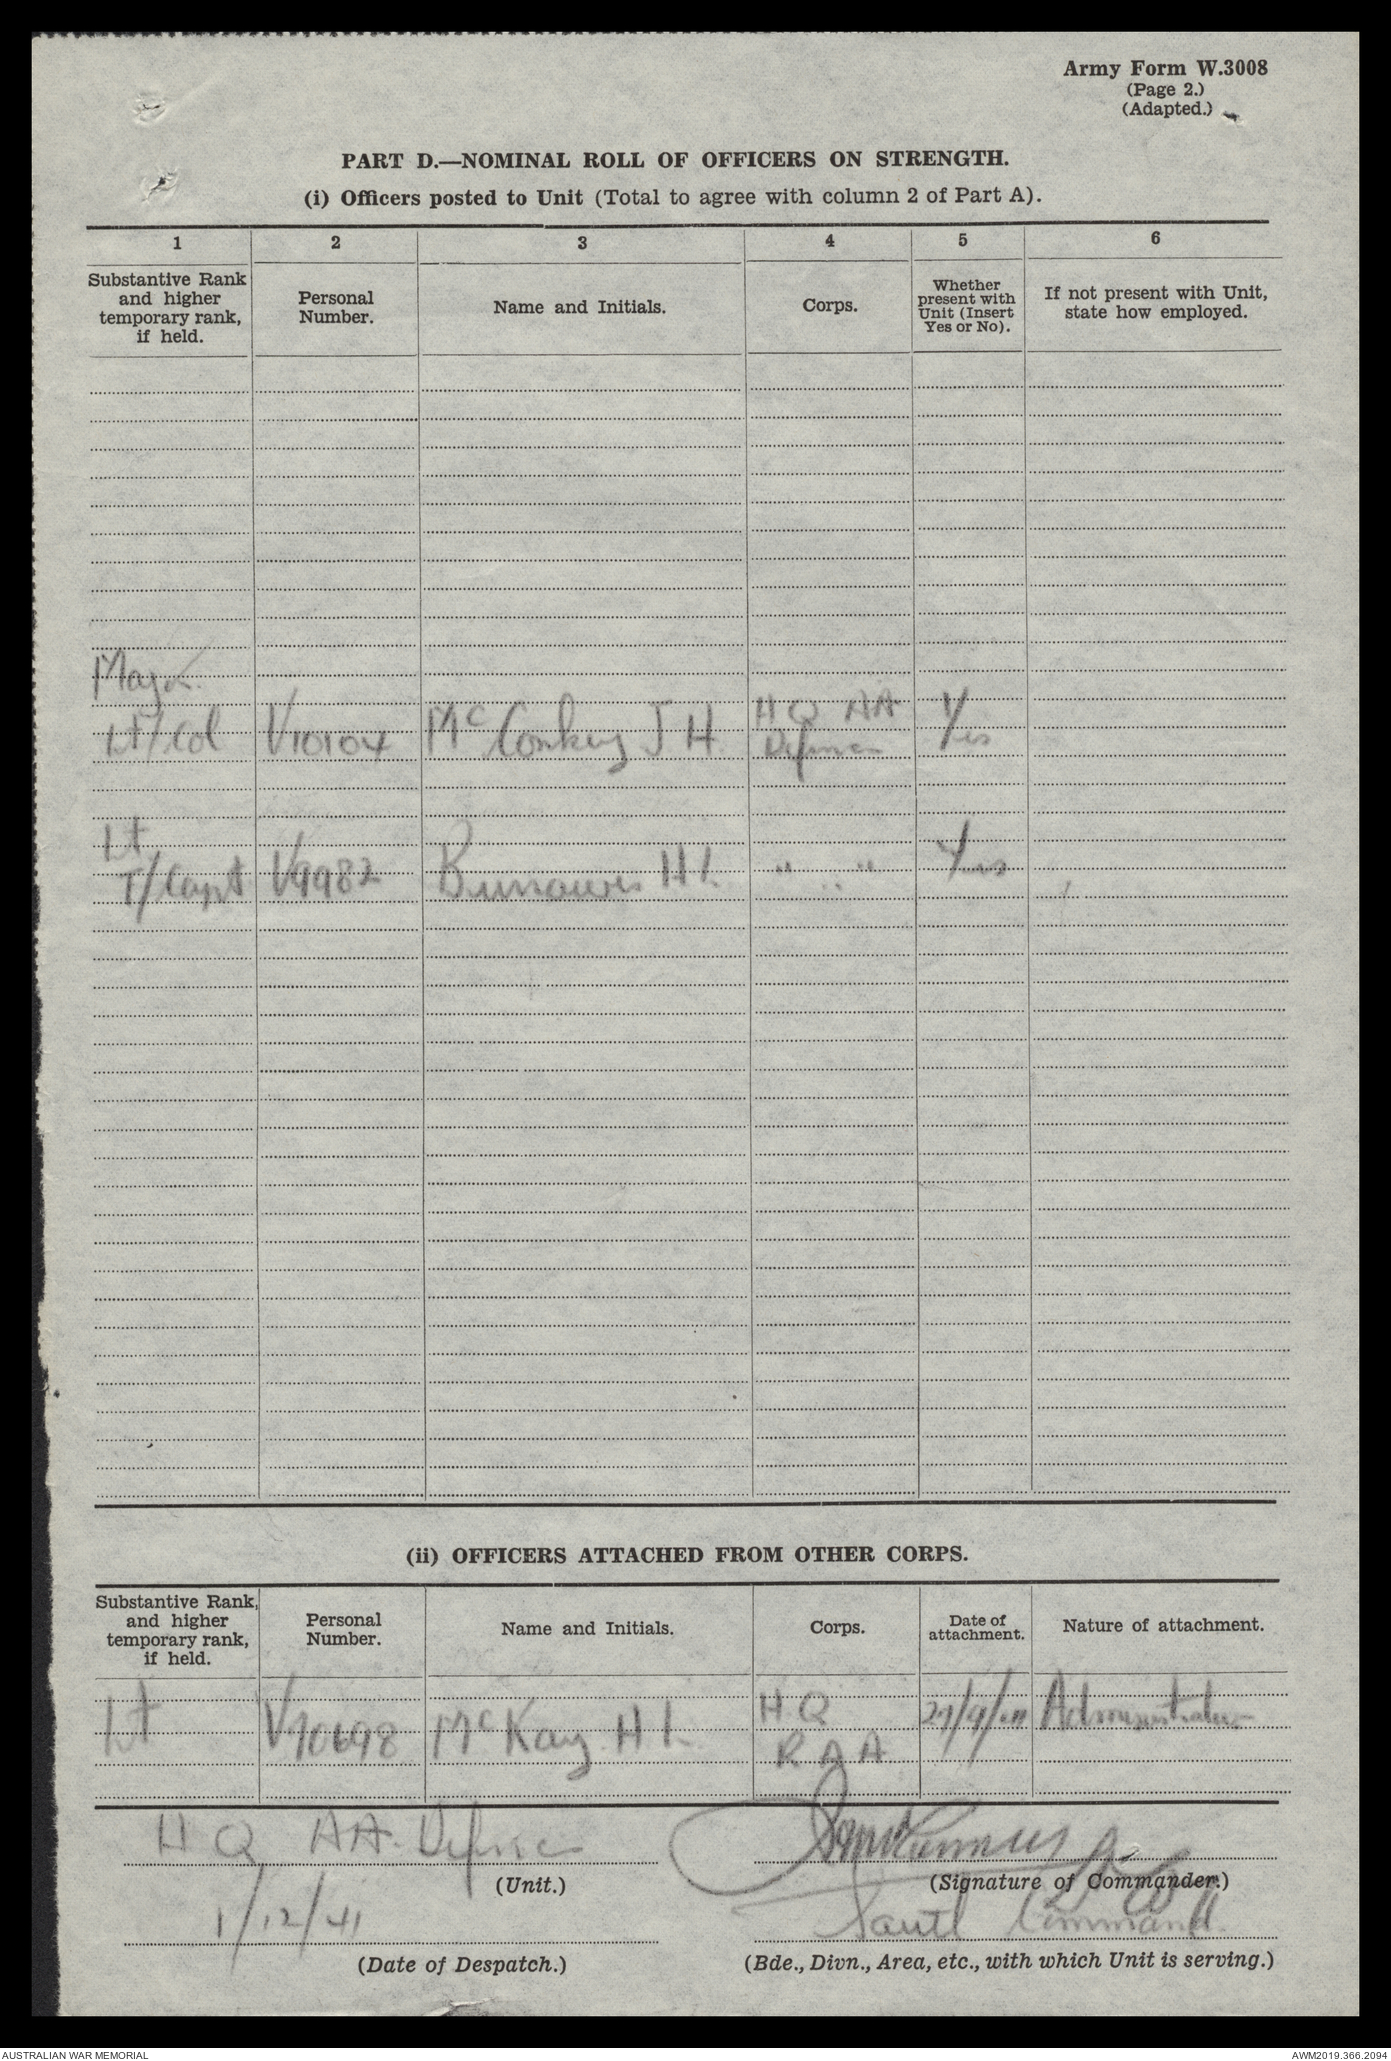 Army Form W.3008
(Page 2.)
(Adapted.)
PART D.—NOMINAL ROLL OF OFFICERS ON STRENGTH.
(i) Officers posted to Unit (Total to agree with column 2 of Part A).
1 2 3 4 5 6
Substantive Rank and higher temporary rank, if held.
Personal Number.
Name and Initials.
Corps.
Whether present with Unit (Insert Yes or No).
If not present with Unit, state how employed.
Major
Lt/Col V10104 McConkey J H H Q AA Defences Yes
Lt
T/Capt V9982 Burrowes H L " " Yes
(ii) OFFICERS ATTACHED FROM OTHER CORPS.
Substantive Rank, and higher temporary rank, if held.
Personal Number.
Name and Initials.
Corps.
Date of attachment.
Nature of attachment.
Lt V70698 McKay H L H Q R A A Administrative
H Q AA Defences
(Unit.)
(Signature of Commander.)
1/12/41
(Date of Despatch.)
Command
(Bde., Divn., Area, etc., with which Unit is serving.)
AUSTRALIAN WAR MEMORIAL
AWM2019.366.2094